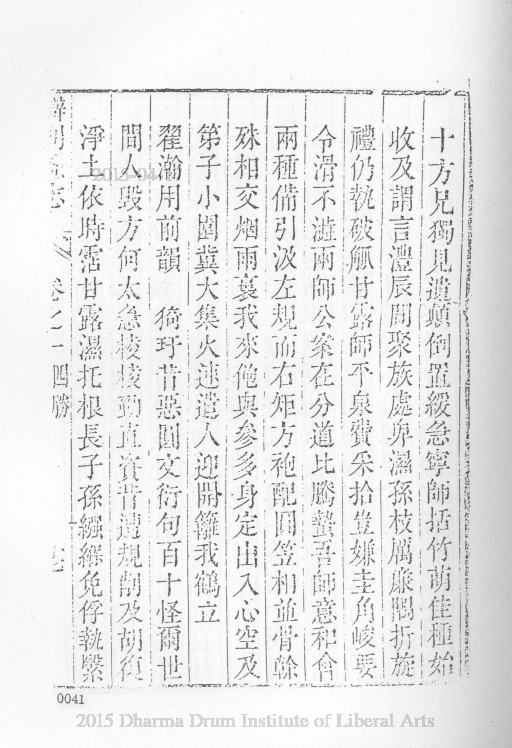 十方兄獨見遺顛倒置緩急寧師括竹萌佳種始
收及謂言澧辰間聚族處卑濕孫枝厲廉隅折旋
禮仍執破觚甘露師平泉費采拾豈嫌圭角峻要
令滑不澁兩師公案在分道比騰蟄吾師意和會
兩種備引汲左規而右矩方袍配圓笠相並骨幹
殊相交烟雨裛我來俺與參多身定出入心空及
第子小闈冀大集火速遣人迎開籬我鶴立
翟瀚用前韻 猗玗昔惡圓文衍句百十怪爾世
間人毀方何太急棱棱勁直資昔遭規削及胡復
淨土依時霑甘露濕托根長子孫繦緥免俘執繫
志 卷之一 四勝
0041
2015 Dharma Drum Institute of Liberal Arts